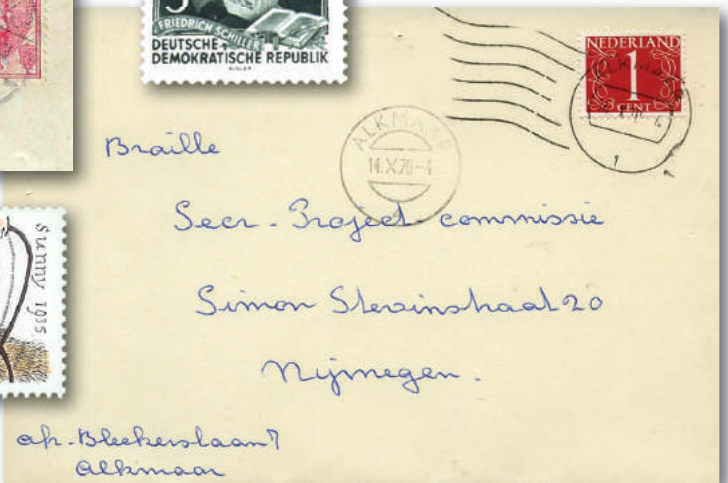 5
FRIEDRICH SCHILLER
DEUTSCHE
DEMOKRATISCHE REPUBLIK
NEDERLAND
1
CENT
ALKMAAR
14.X.70-4
1
Braille
Secr - Project - commissie
Simon Stevinstraat 20
Nijmegen.
afz. Bleekerslaan 7
Alkmaar
Sunny 1935